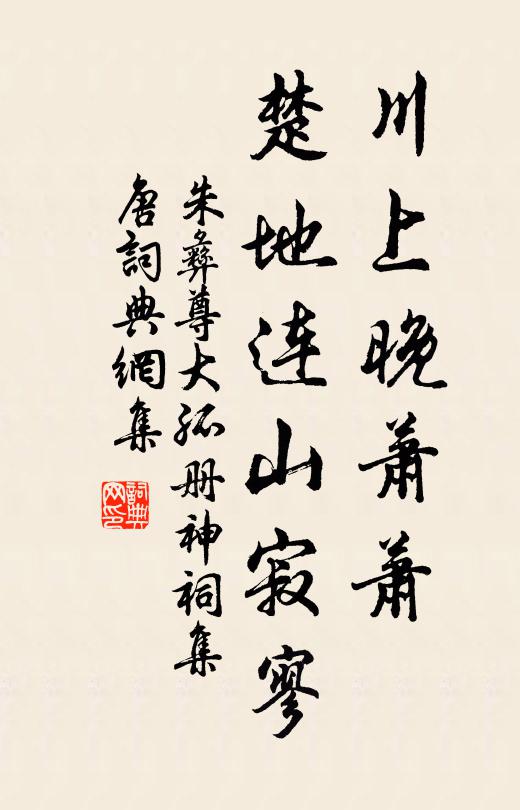 川上晚蕭蕭
楚地连山寂寥
朱彝尊大孤册神祠集
唐詞典網集
詞典网印